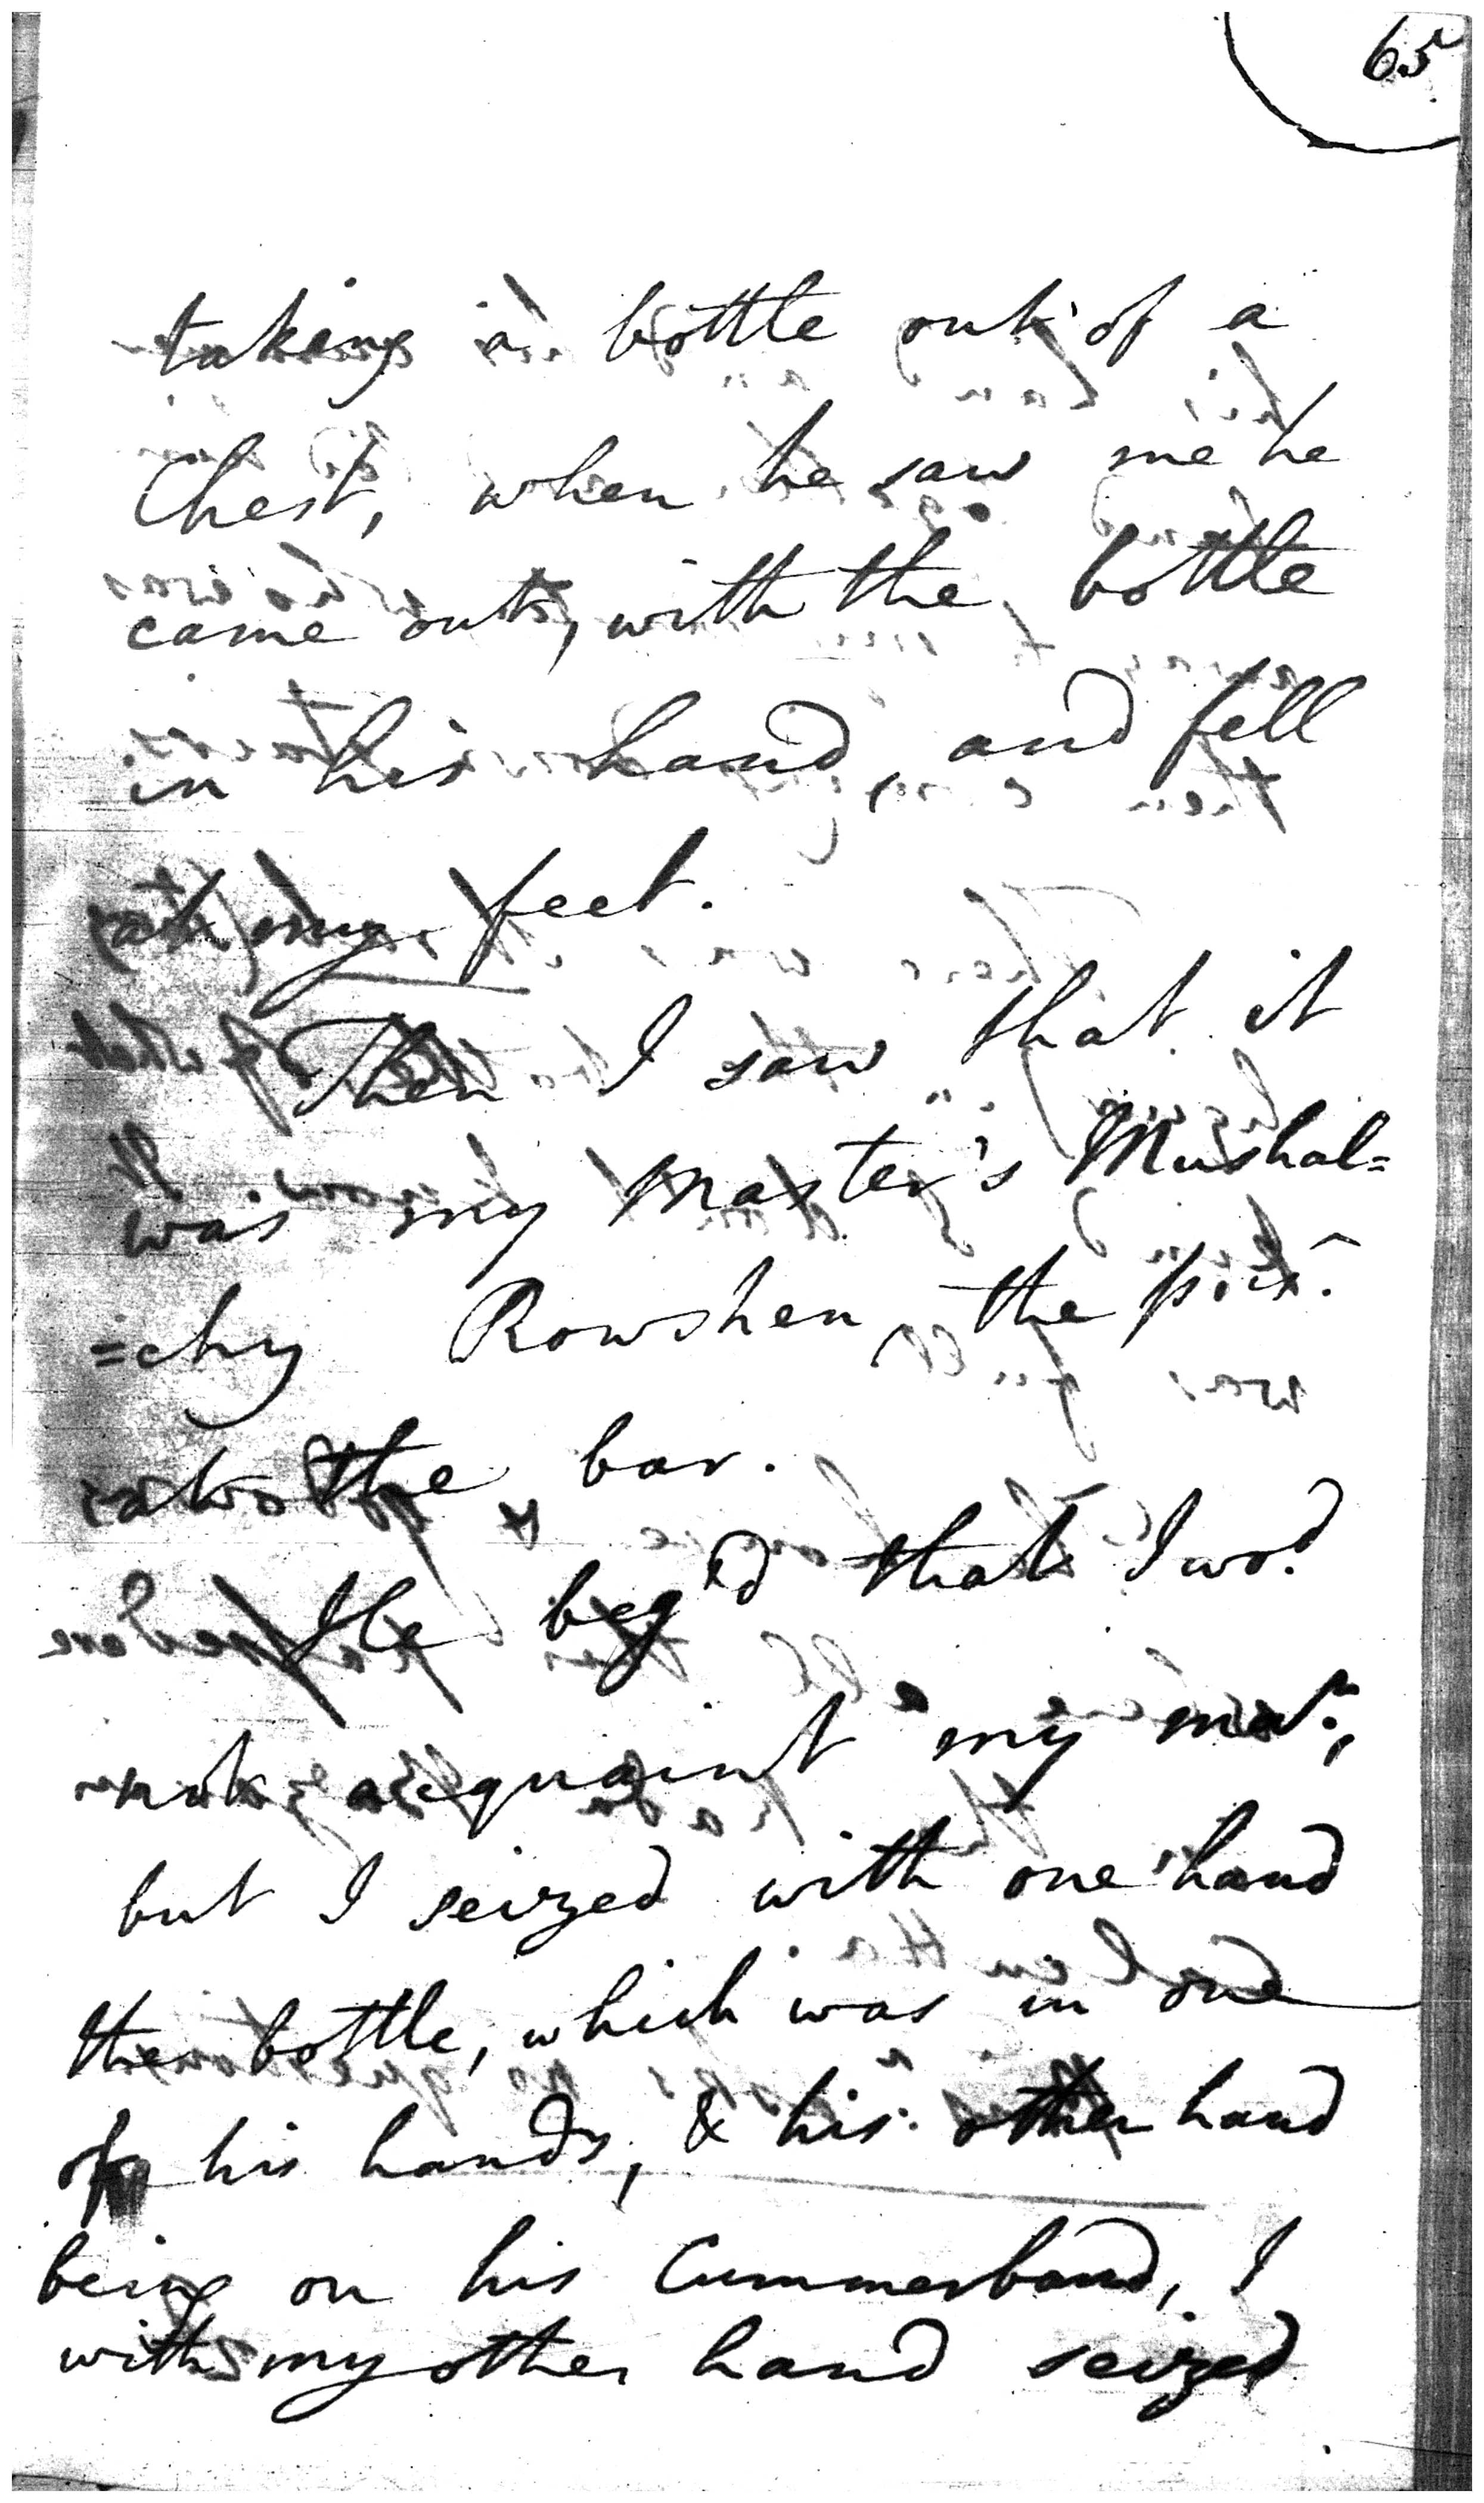 65
taking a bottle out of a
Chest, when he saw me he
came out, with the bottle
in his hand, and fell
at my feet.
Then I saw that it
was my Master's Mushal=
=chy Rowshen, the pris.^r
at the bar.
He beg'd that I wo.^d
not acquaint my mas.^r,
but I seized with one hand
the bottle, which was in one
of his hands, & his other hand
being on his Cummerband, I
with my other hand seized